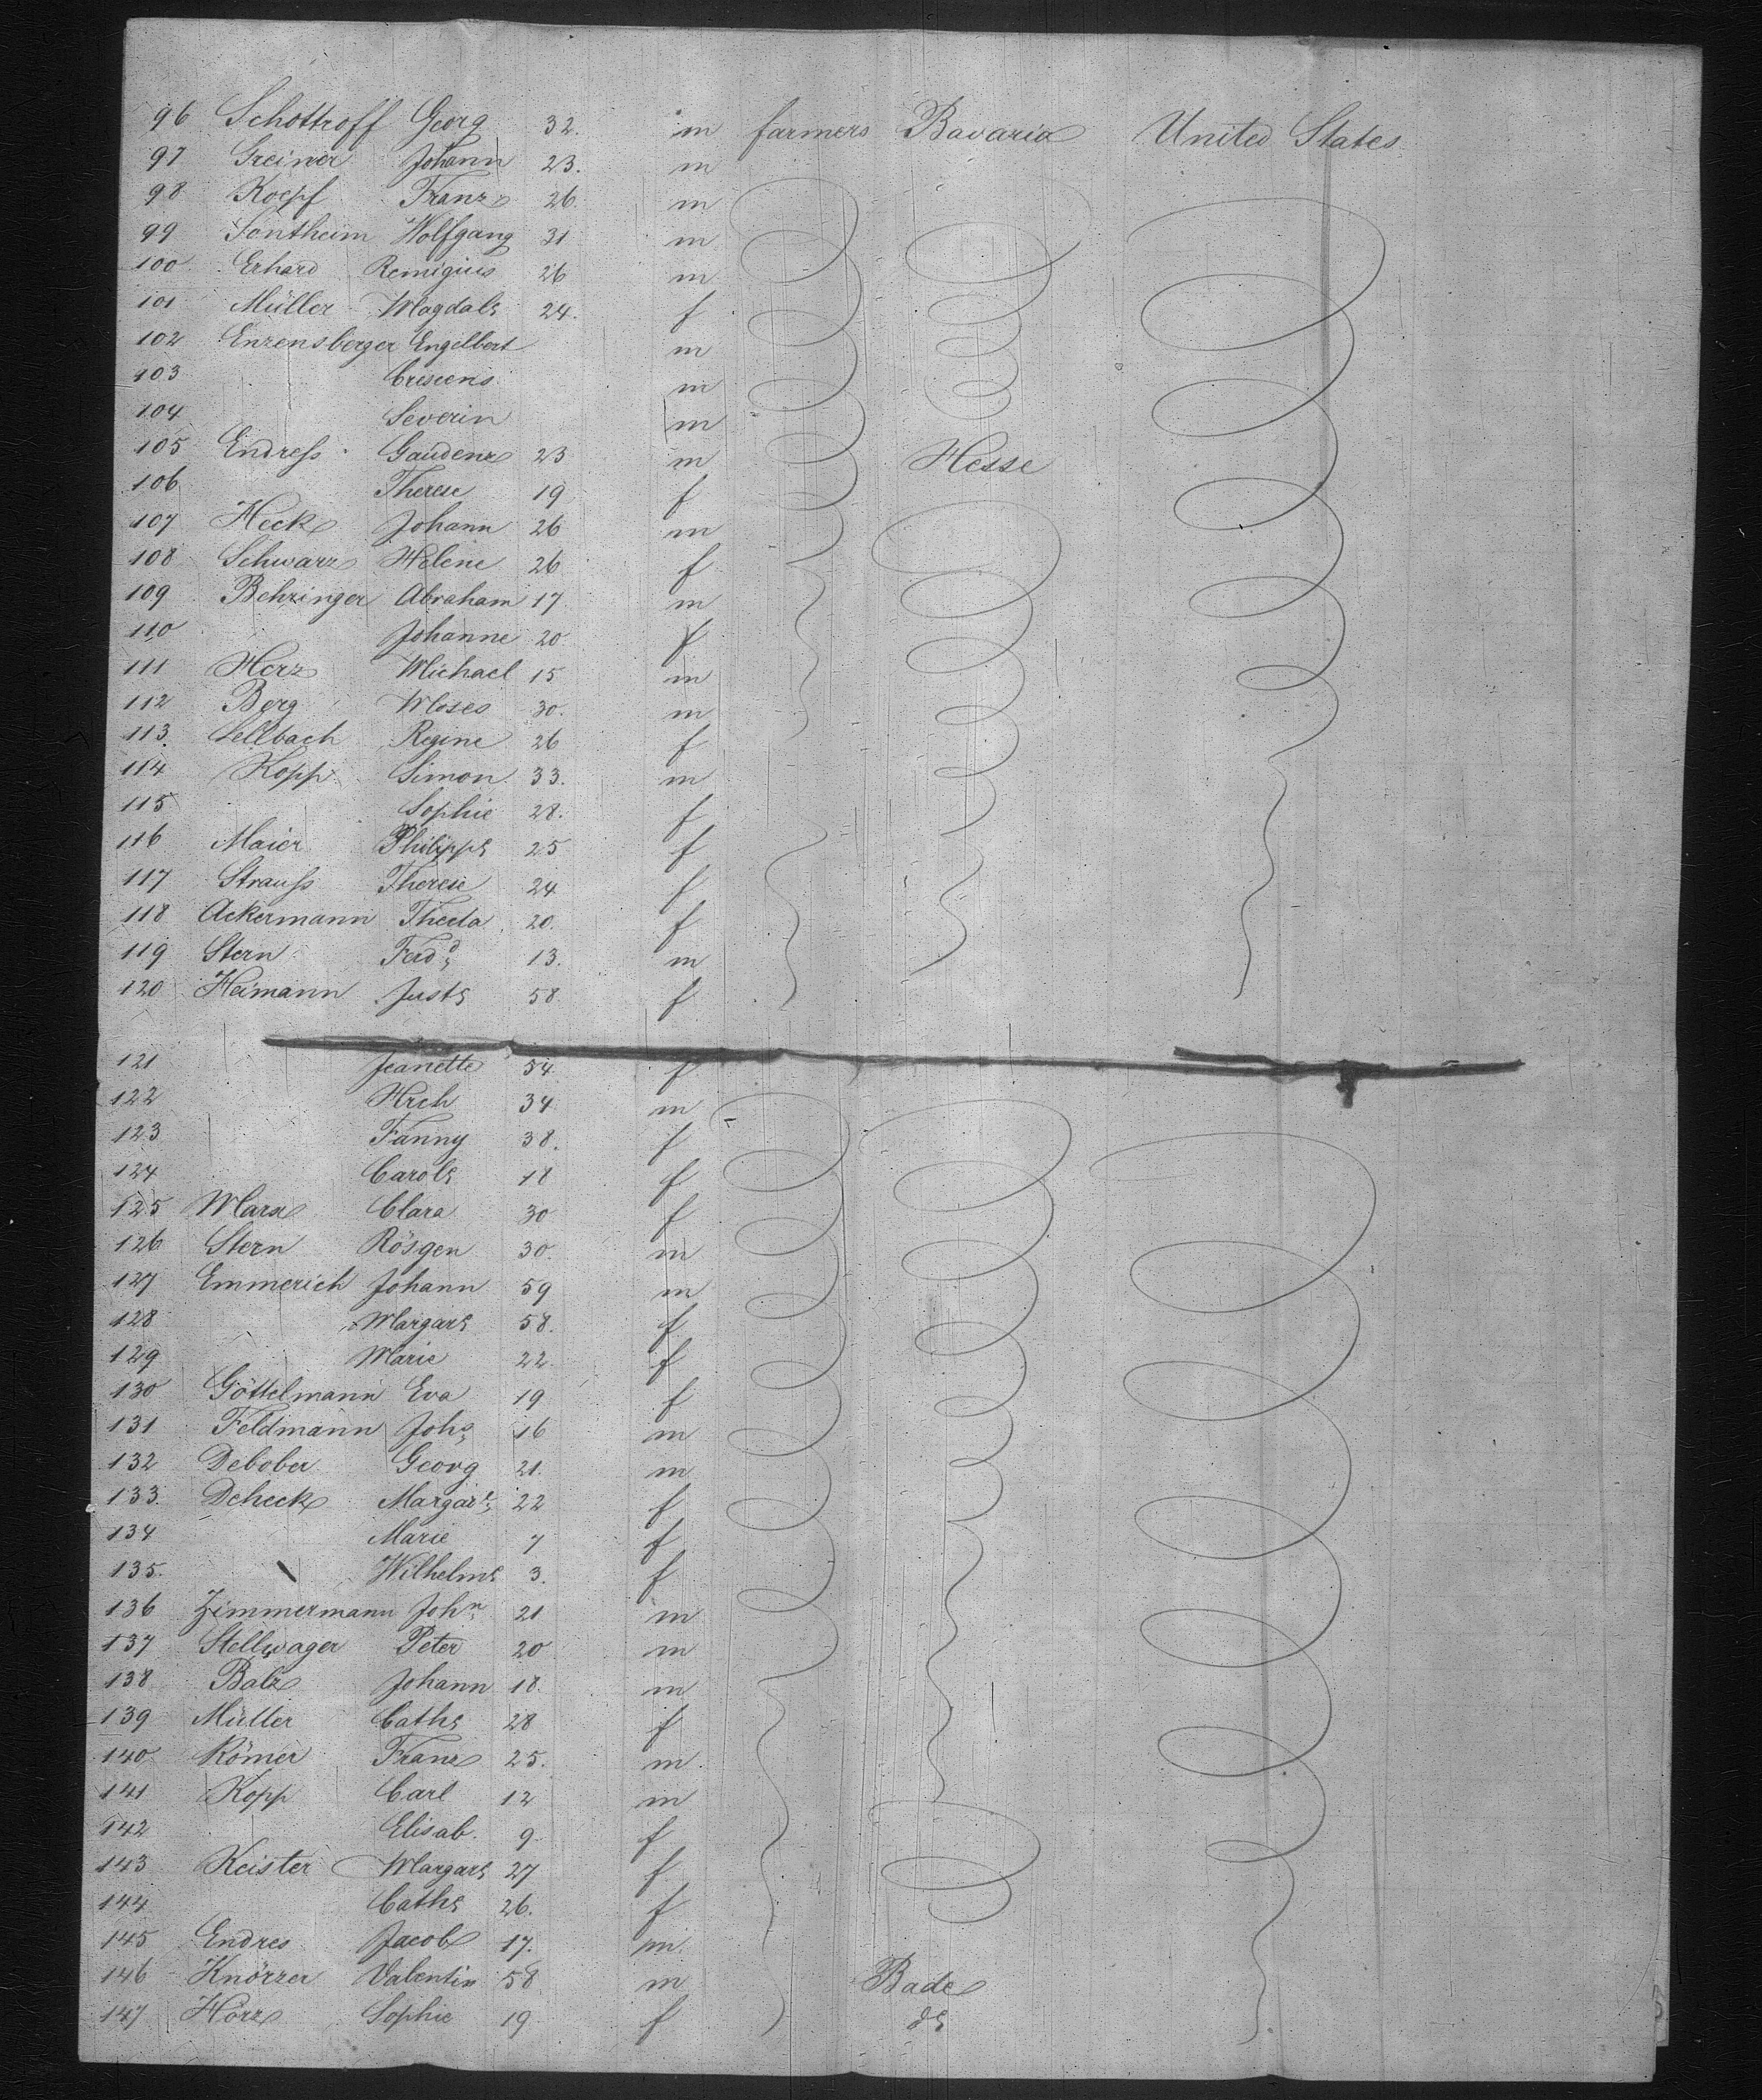 96 Schottroff Georg 32. m farmers Bavaria United States
97 Greiner Johann 23. m
98 Koepf Franz 26. m
99 Sontheim Wolfgang 31 m
100 Erhard Remigius 26 m
101 Müller Magdals 24. f
102 Enzensberger Engelbert m
103 Crescens m
104 Severin m
105 Endress Gaudenz 23 m Hesse
106 Therese 19 f
107 Heck Johann 26 m
108 Schwarz Helene 26 f
109 Behringer Abraham 17 m
110 Johanne 20 f
111 Herz Michael 15 m
112 Berg Moses 30. m
113. Sellbach Regine 26 f
114 Kopp Simon 33. m
115 Sophie 28. f
116 Maier Philipps 25 f
117 Strauss Therese 24 f
118 Ackermann Thecla 20. f
119 Stern Ferd 13. m
120 Heimann Justs 58 f
121 Jeanette 54 f
122 Hrch 34 m
123 Fanny 38. f
124 Carols 18 f
125 Marx Clara 30 f
126 Stern Rösgen 30. m
127 Emmerich Johann 59 m
128 Margars 58. f
129 Marie 22. f
130 Göttelmann Eva 19 f
131 Feldmann Joh 16 m
132 Debober Georg 21. m
133. Deheck Margart 22 f
134 Marie 7 f
135. Wilhelms 3. f
136 Zimmermann Johⁿ 21 m
137 Stellwager Peter 20 m
138 Balz Johann 18. m
139 Müller Caths 28 f
140 Römer Franz 25. m
141 Kopp Carl 12 m
142 Elisab. 9 f
143 Keister Margars 27 f
144 Caths 26. f
145 Endres Jacob 17. m.
146 Knörzer Valentin 58 m Bade
147 Hörz Sophie 19 f do